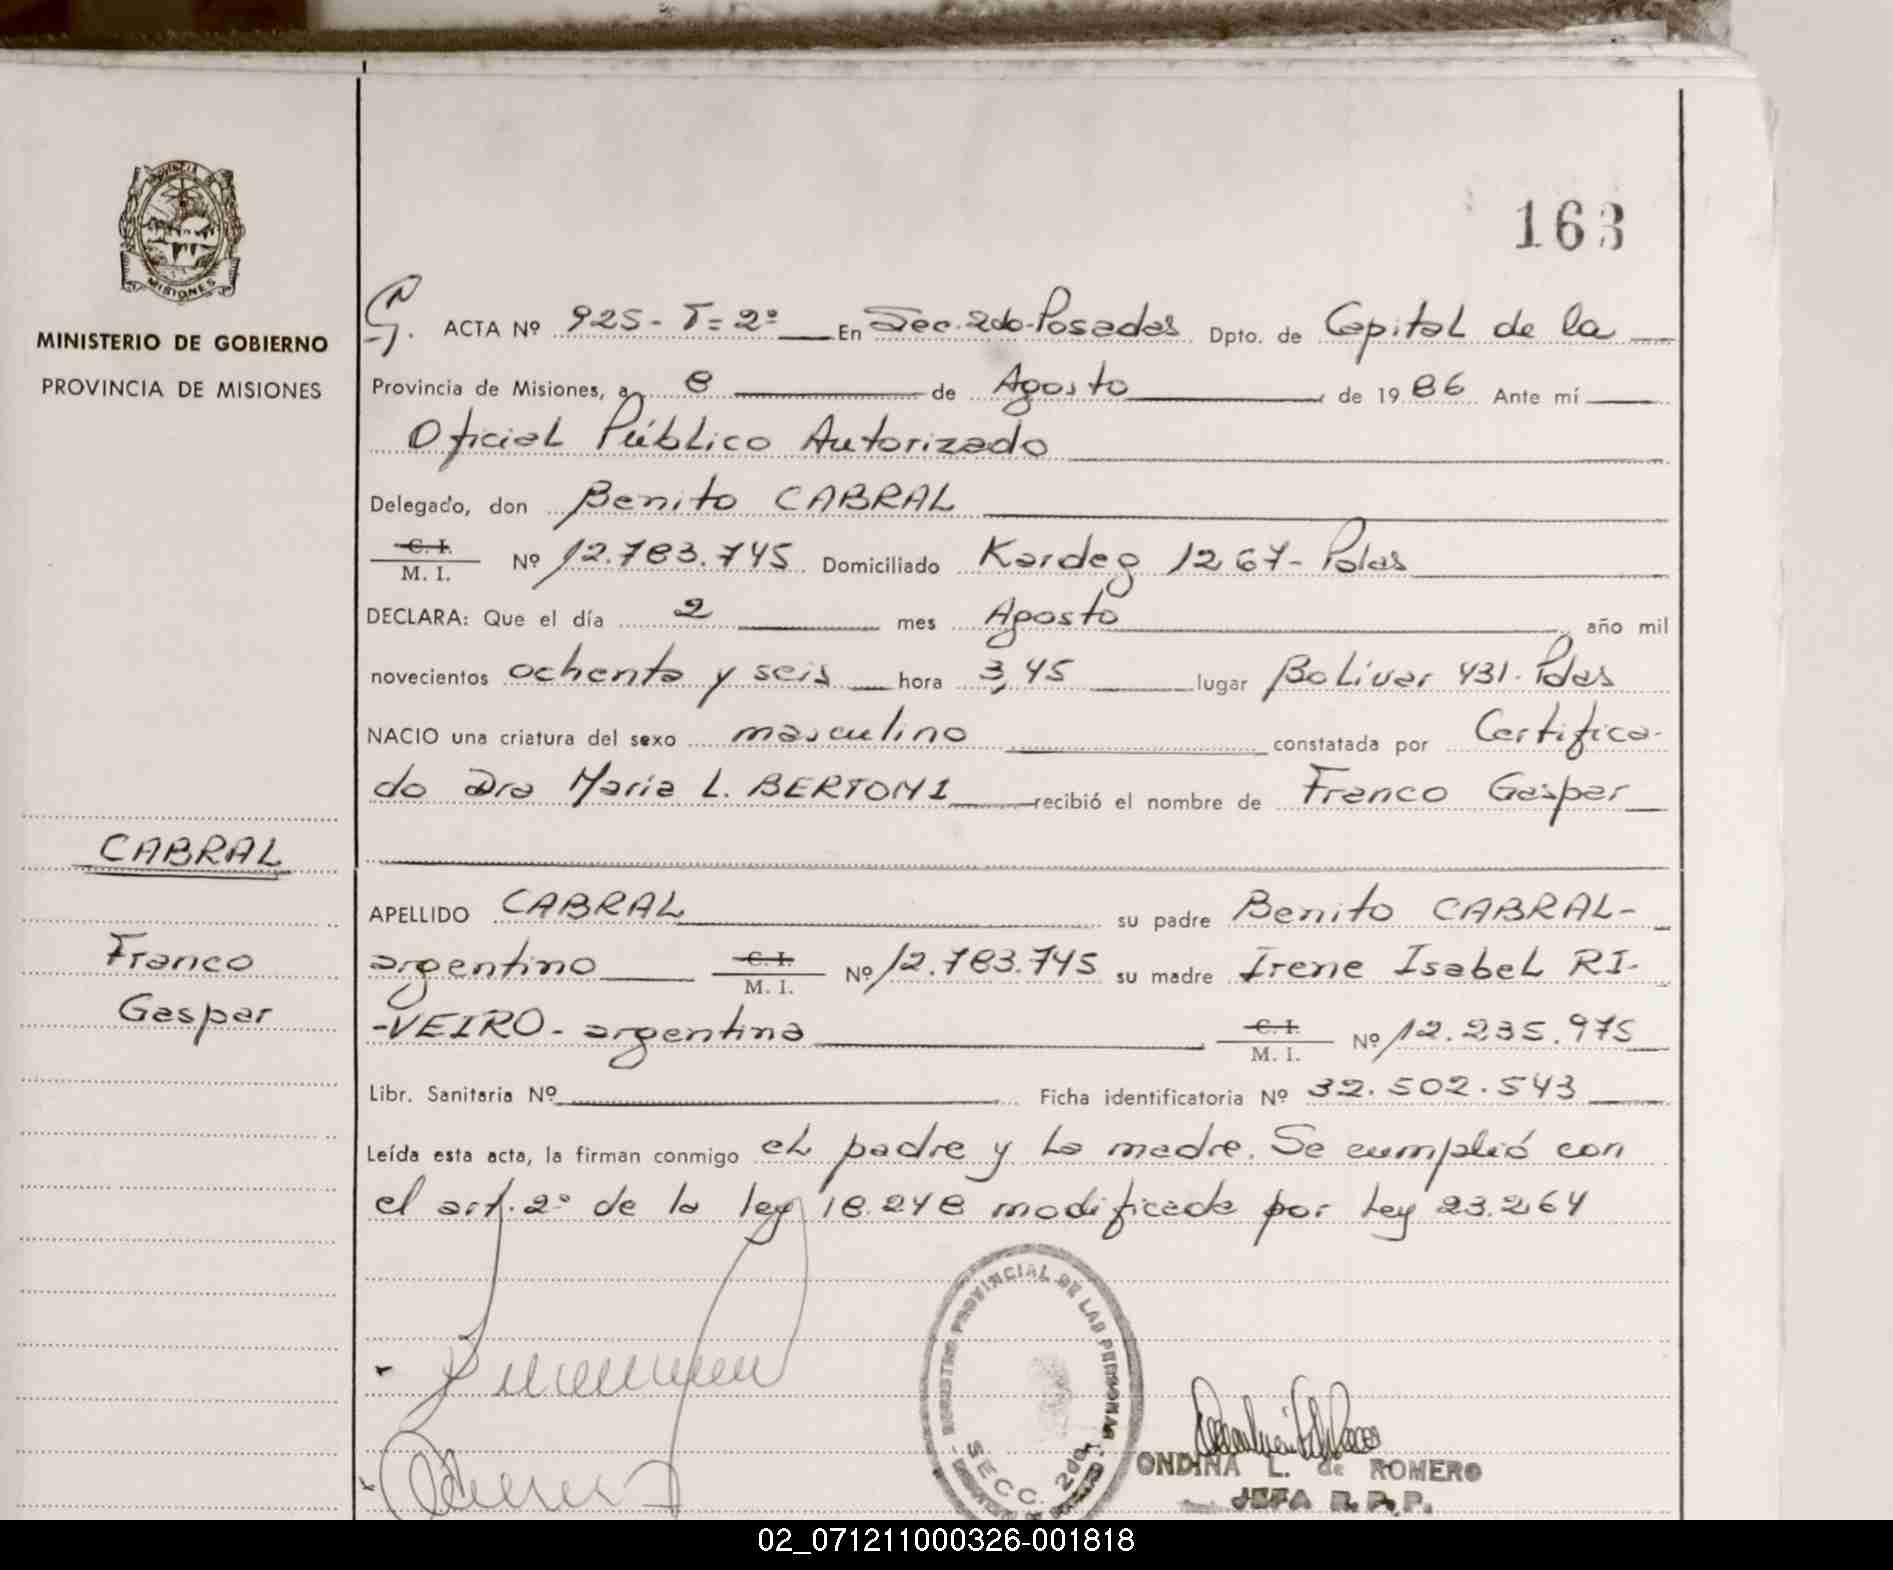 163
PROVINCIA DE
MISIONES
MINISTERIO DE GOBIERNO
PROVINCIA DE MISIONES
G. ACTA Nº 925 - T = 2º En Sec. 2do - Posadas Dpto. de Capital de la
Provincia de Misiones, a 8 de Agosto de 1986 Ante mí
Oficial Público Autorizado
Delegado, don Benito CABRAL
C. I.
M. I. Nº 12.783.745 Domiciliado Kardeg 1267 - Pdas
DECLARA: Que el día 2 mes Agosto año mil
novecientos ochenta y seis hora 3,45 lugar Bolivar 431 - Pdas
NACIO una criatura del sexo masculino constatada por Certifica-
do Dra Maria L. BERTONI recibió el nombre de Franco Gaspar
CABRAL
Franco
Gaspar
APELLIDO CABRAL su padre Benito CABRAL -
argentino C. I. M. I. Nº 12.783.745 su madre Irene Isabel RI-
-VEIRO - argentina C. I. M. I. Nº 12.235.975
Libr. Sanitaria Nº Ficha identificatoria Nº 32.502.543
Leída esta acta, la firman conmigo el padre y la madre. Se cumplió con
el art. 2º de la ley 18.248 modificada por Ley 23.264
REGISTRO PROVINCIAL DE LAS PERSONAS
SECC. 2da.
ONDINA L. de ROMERO
JEFA R.P.P.
02_071211000326-001818